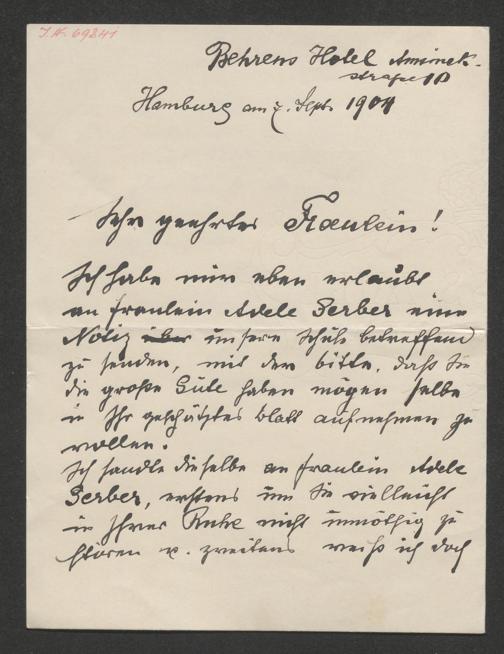 J.N. 69841
Behrens Hotel Admiralität-
strasse 10
Hamburg am 7. Sept. 1904
Sehr geehrtes Fräulein!
Ich habe mir eben erlaubt
an Fräulein Adele Gerber eine
Notiz über unsere Schule betreffend
zu senden, mit der bitte, daß Sie
die große Güte haben mögen selbe
in Ihr geschätztes Blatt aufnehmen zu
wollen.
Ich sandte dieselbe an Fräulein Adele
Gerber, erstens um Sie vielleicht
in Ihrer Ruhe nicht unnöthig zu
stören u. zweitens weiß ich doch